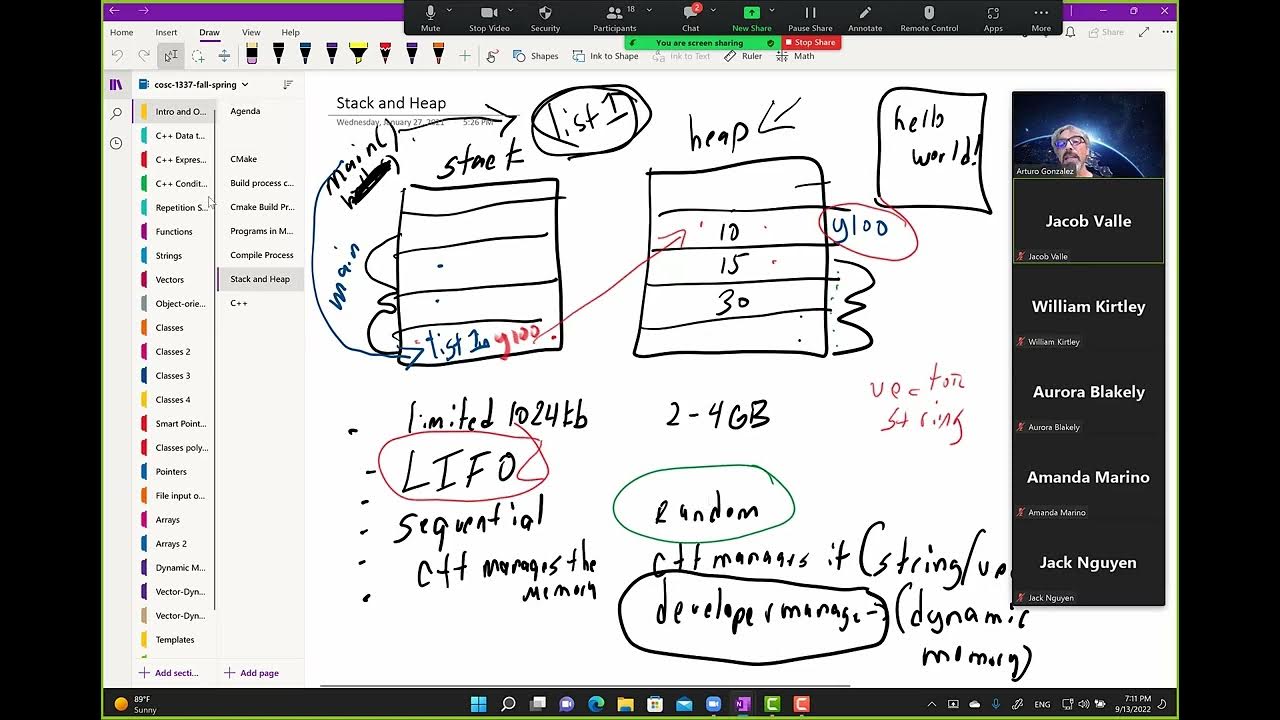 Mute
Stop Video
Security
Participants
18
Chat
2
New Share
Pause Share
Annotate
Remote Control
Apps
More
You are screen sharing
Stop Share
Home
Insert
Draw
View
Help
Share
Shapes
Ink to Shape
Ink to Text
Ruler
Math
cosc-1337-fall-spring
Intro and O...
C++ Data t...
C++ Expres...
C++ Condit...
Repetition S...
Functions
Strings
Vectors
Object-orie...
Classes
Classes 2
Classes 3
Classes 4
Smart Point...
Classes poly...
Pointers
File input o...
Arrays
Arrays 2
Dynamic M...
Vector-Dyn...
Vector-Dyn...
Templates
Add secti...
Agenda
CMake
Build process c...
Cmake Build Pr...
Programs in M...
Compile Process
Stack and Heap
C++
Add page
Stack and Heap
Wednesday, January 27, 2021
5:26 PM
main()
list1
stack
heap
hello
world!
main
10
y100
15
30
list1
y100
vector
string
limited 1024kb
2-4GB
LIFO
Random
sequential
C++ manages the
memory
C++ manages it (string/ve
developer manage
(dynamic
memory)
Arturo Gonzalez
Jacob Valle
Jacob Valle
William Kirtley
William Kirtley
Aurora Blakely
Aurora Blakely
Amanda Marino
Amanda Marino
Jack Nguyen
Jack Nguyen
89°F
Sunny
ENG
7:11 PM
9/13/2022